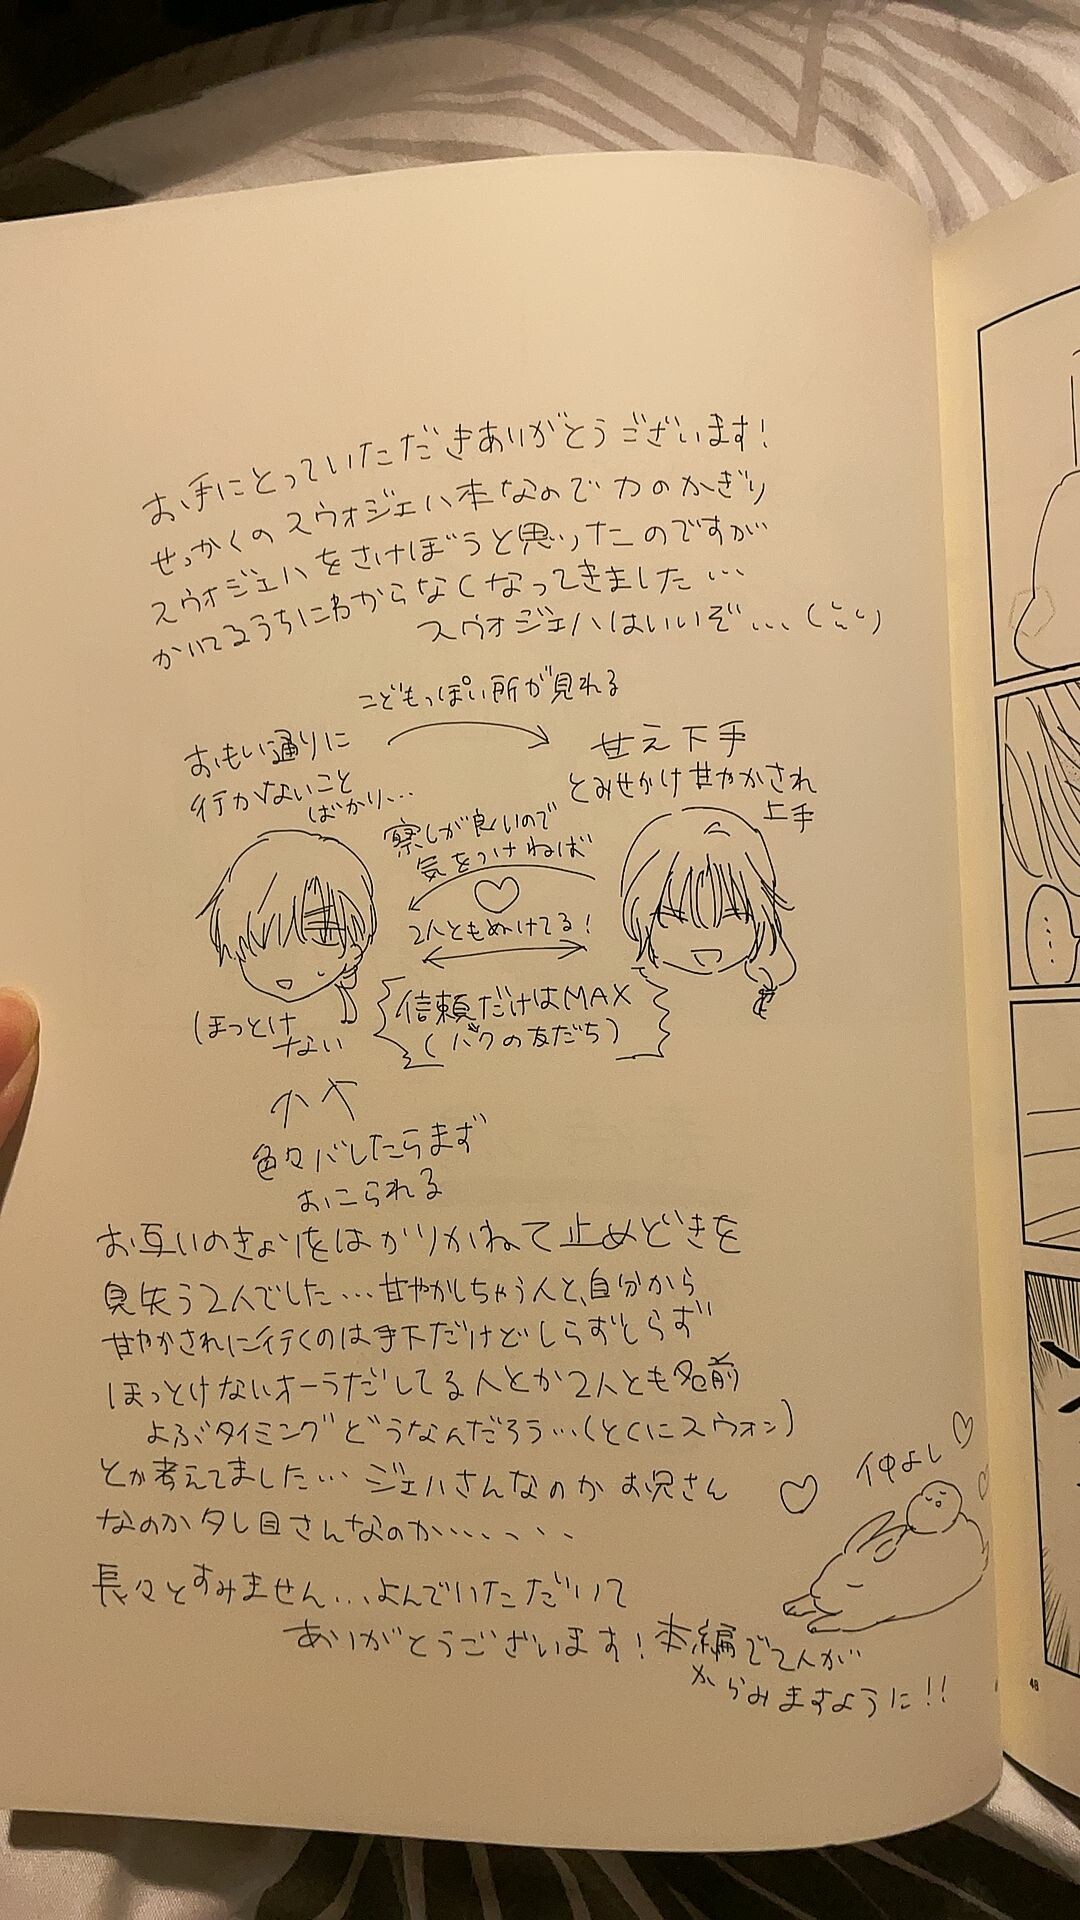 お手にとっていただきありがとうございます!
せっかくのスウォジェハ本なので力のかぎり
スウォジェハをさけぼうと思ったのですが
かいてるうちにわからなくなってきました…
スウォジェハはいいぞ…
こどもっぽい所が見れる
おもい通りに
行かないこと
ばかり…
甘え下手
とみせかけ甘やかされ
上手
察しが良いので
気をつけねば
2人ともぬけてる!
信頼だけはMAX
(ハクの友だち)
ほっとけ
ない
色々バレたらまず
おこられる
お互いのきょりをはかりかねて止めどきを
見失う2人でした…甘やかしちゃう人と、自分から
甘やかされに行くのは手下だけどしらずしらず
ほっとけないオーラだしてる人とか2人とも名前
よぶタイミングどうなんだろう…(とくにスウォン)
とか考えてました…ジェハさんなのかお兄さん
なのかタレ目さんなのか……
仲よし
長々とすみません…よんでいただいて
ありがとうございます!本編で2人が
からみますように!!
48
…